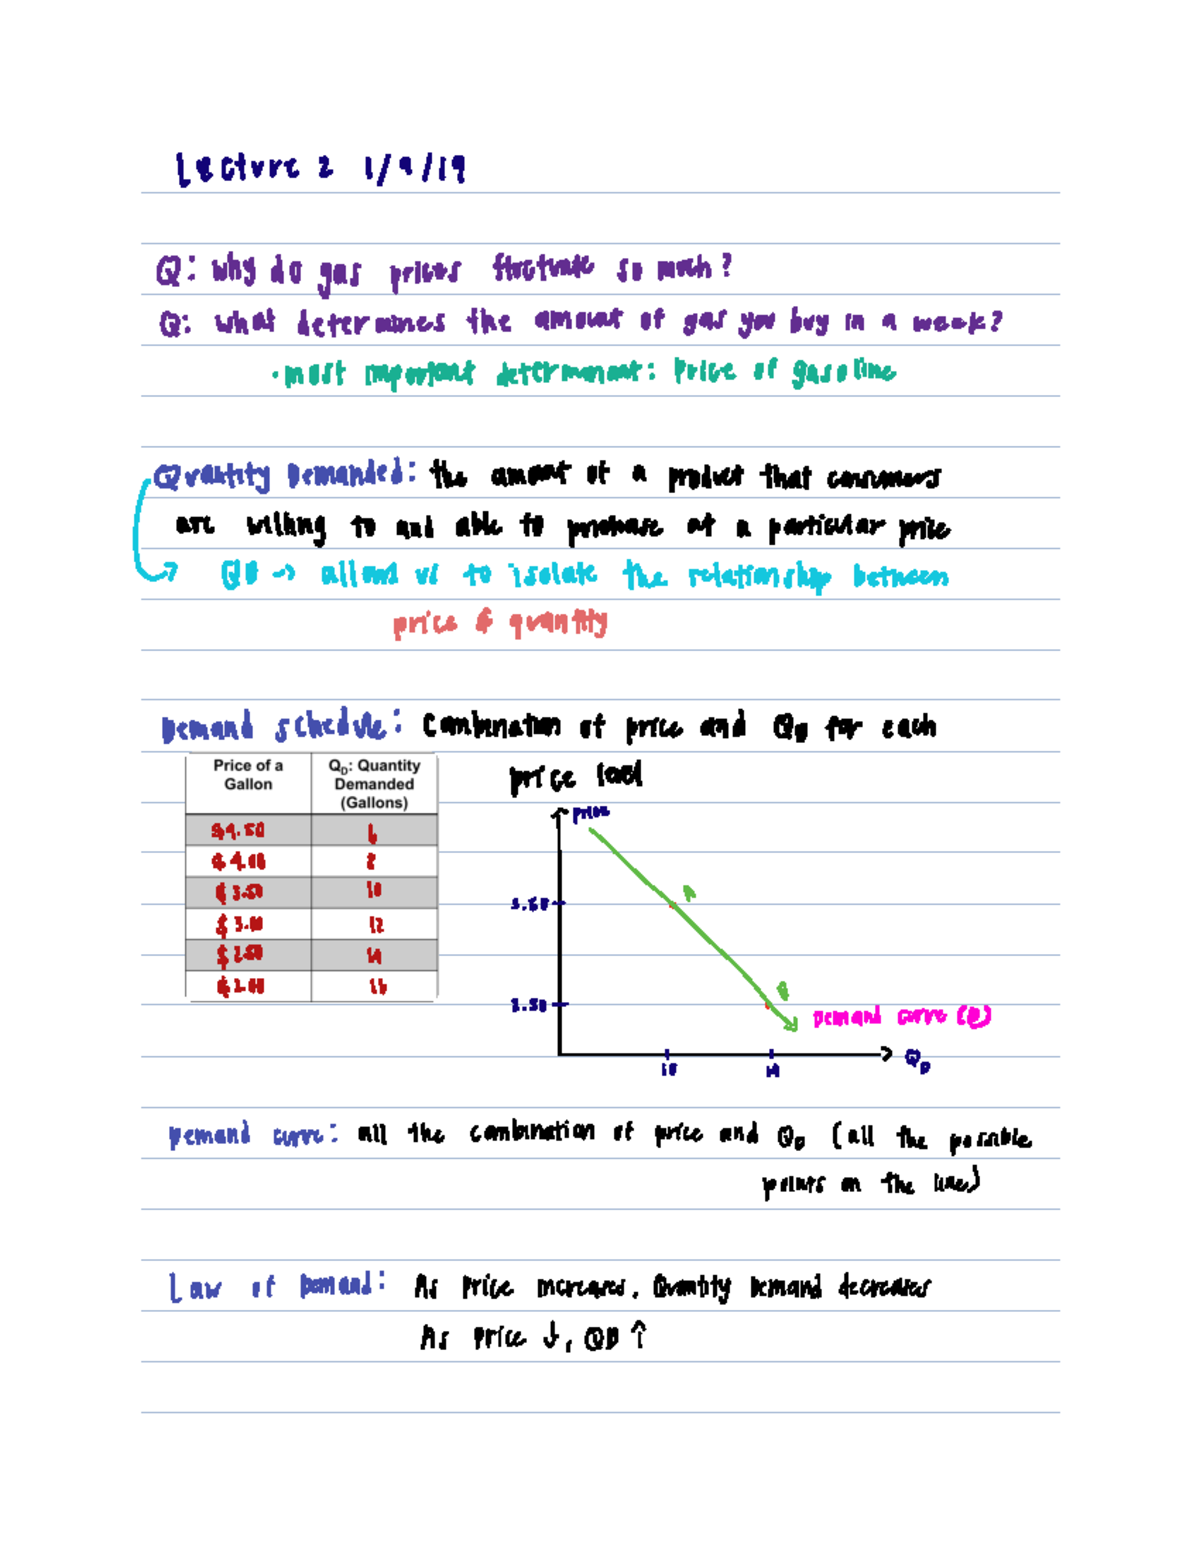 Lecture 2 1/9/19
Q: why do gas prices fluctuate so much?
Q: what determines the amount of gas you buy in a week?
• most important determinant: Price of gasoline
Quantity Demanded: the amount of a product that consumers
are willing to and able to purchase at a particular price
QD → allows us to isolate the relationship between
price & quantity
Demand schedule: Combination of price and QD for each
price level
Price of a Gallon | QD: Quantity Demanded (Gallons)
$4.50 6
$4.00 8
$3.50 10
$3.00 12
$2.50 14
$2.00 16
Price
3.50
A
2.50
B
Demand curve (D)
10 14
QD
Demand curve: all the combination of price and QD (all the possible
points on the line)
Law of Demand: As Price increases, Quantity Demand decreases
As Price ↓, QD ↑